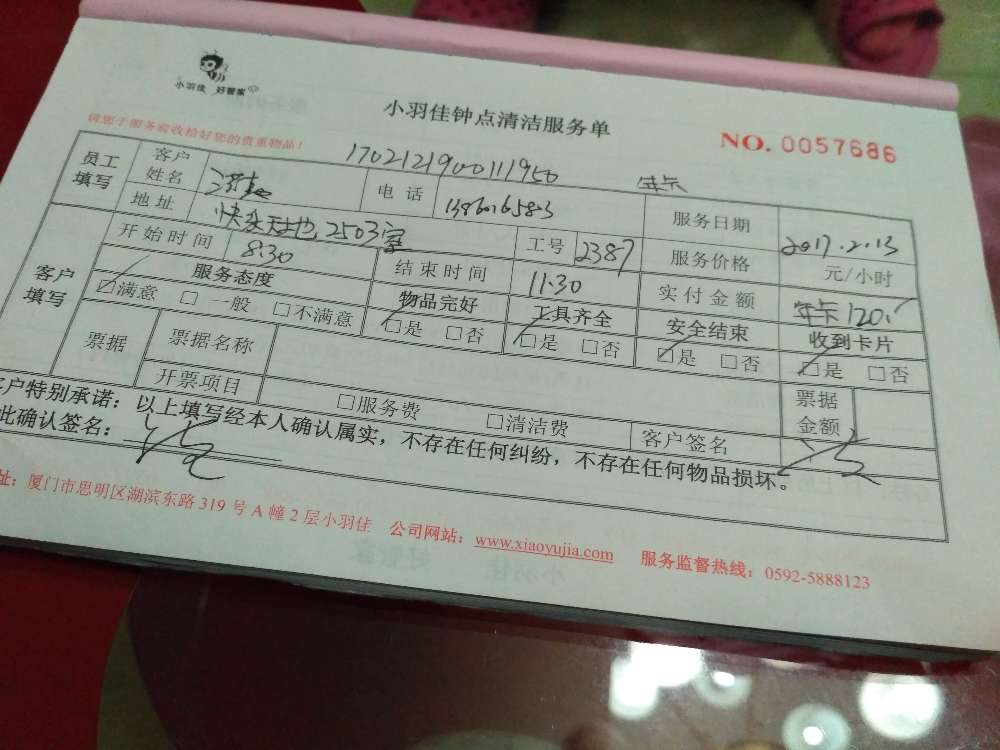 小羽佳 好管家
小羽佳钟点清洁服务单
NO. 0057686
请您于服务前收拾好您的贵重物品!
1702121900111950 年卡
员工填写 客户姓名 电话 服务日期 2017.2.13
地址 2503室 工号 2387 服务价格 元/小时
客户填写 开始时间 8:30 结束时间 11:30 实付金额 年卡120
服务态度 物品完好 工具齐全 安全结束 收到卡片
☑满意 □一般 □不满意 ☑是 □否 ☑是 □否 ☑是 □否 ☑是 □否
票据 票据名称 票据金额
开票项目 □服务费 □清洁费 客户签名
客户特别承诺:以上填写经本人确认属实,不存在任何纠纷,不存在任何物品损坏。
此确认签名:
址:厦门市思明区湖滨东路 319 号 A 幢 2 层小羽佳 公司网站:www.xiaoyujia.com 服务监督热线:0592-5888123